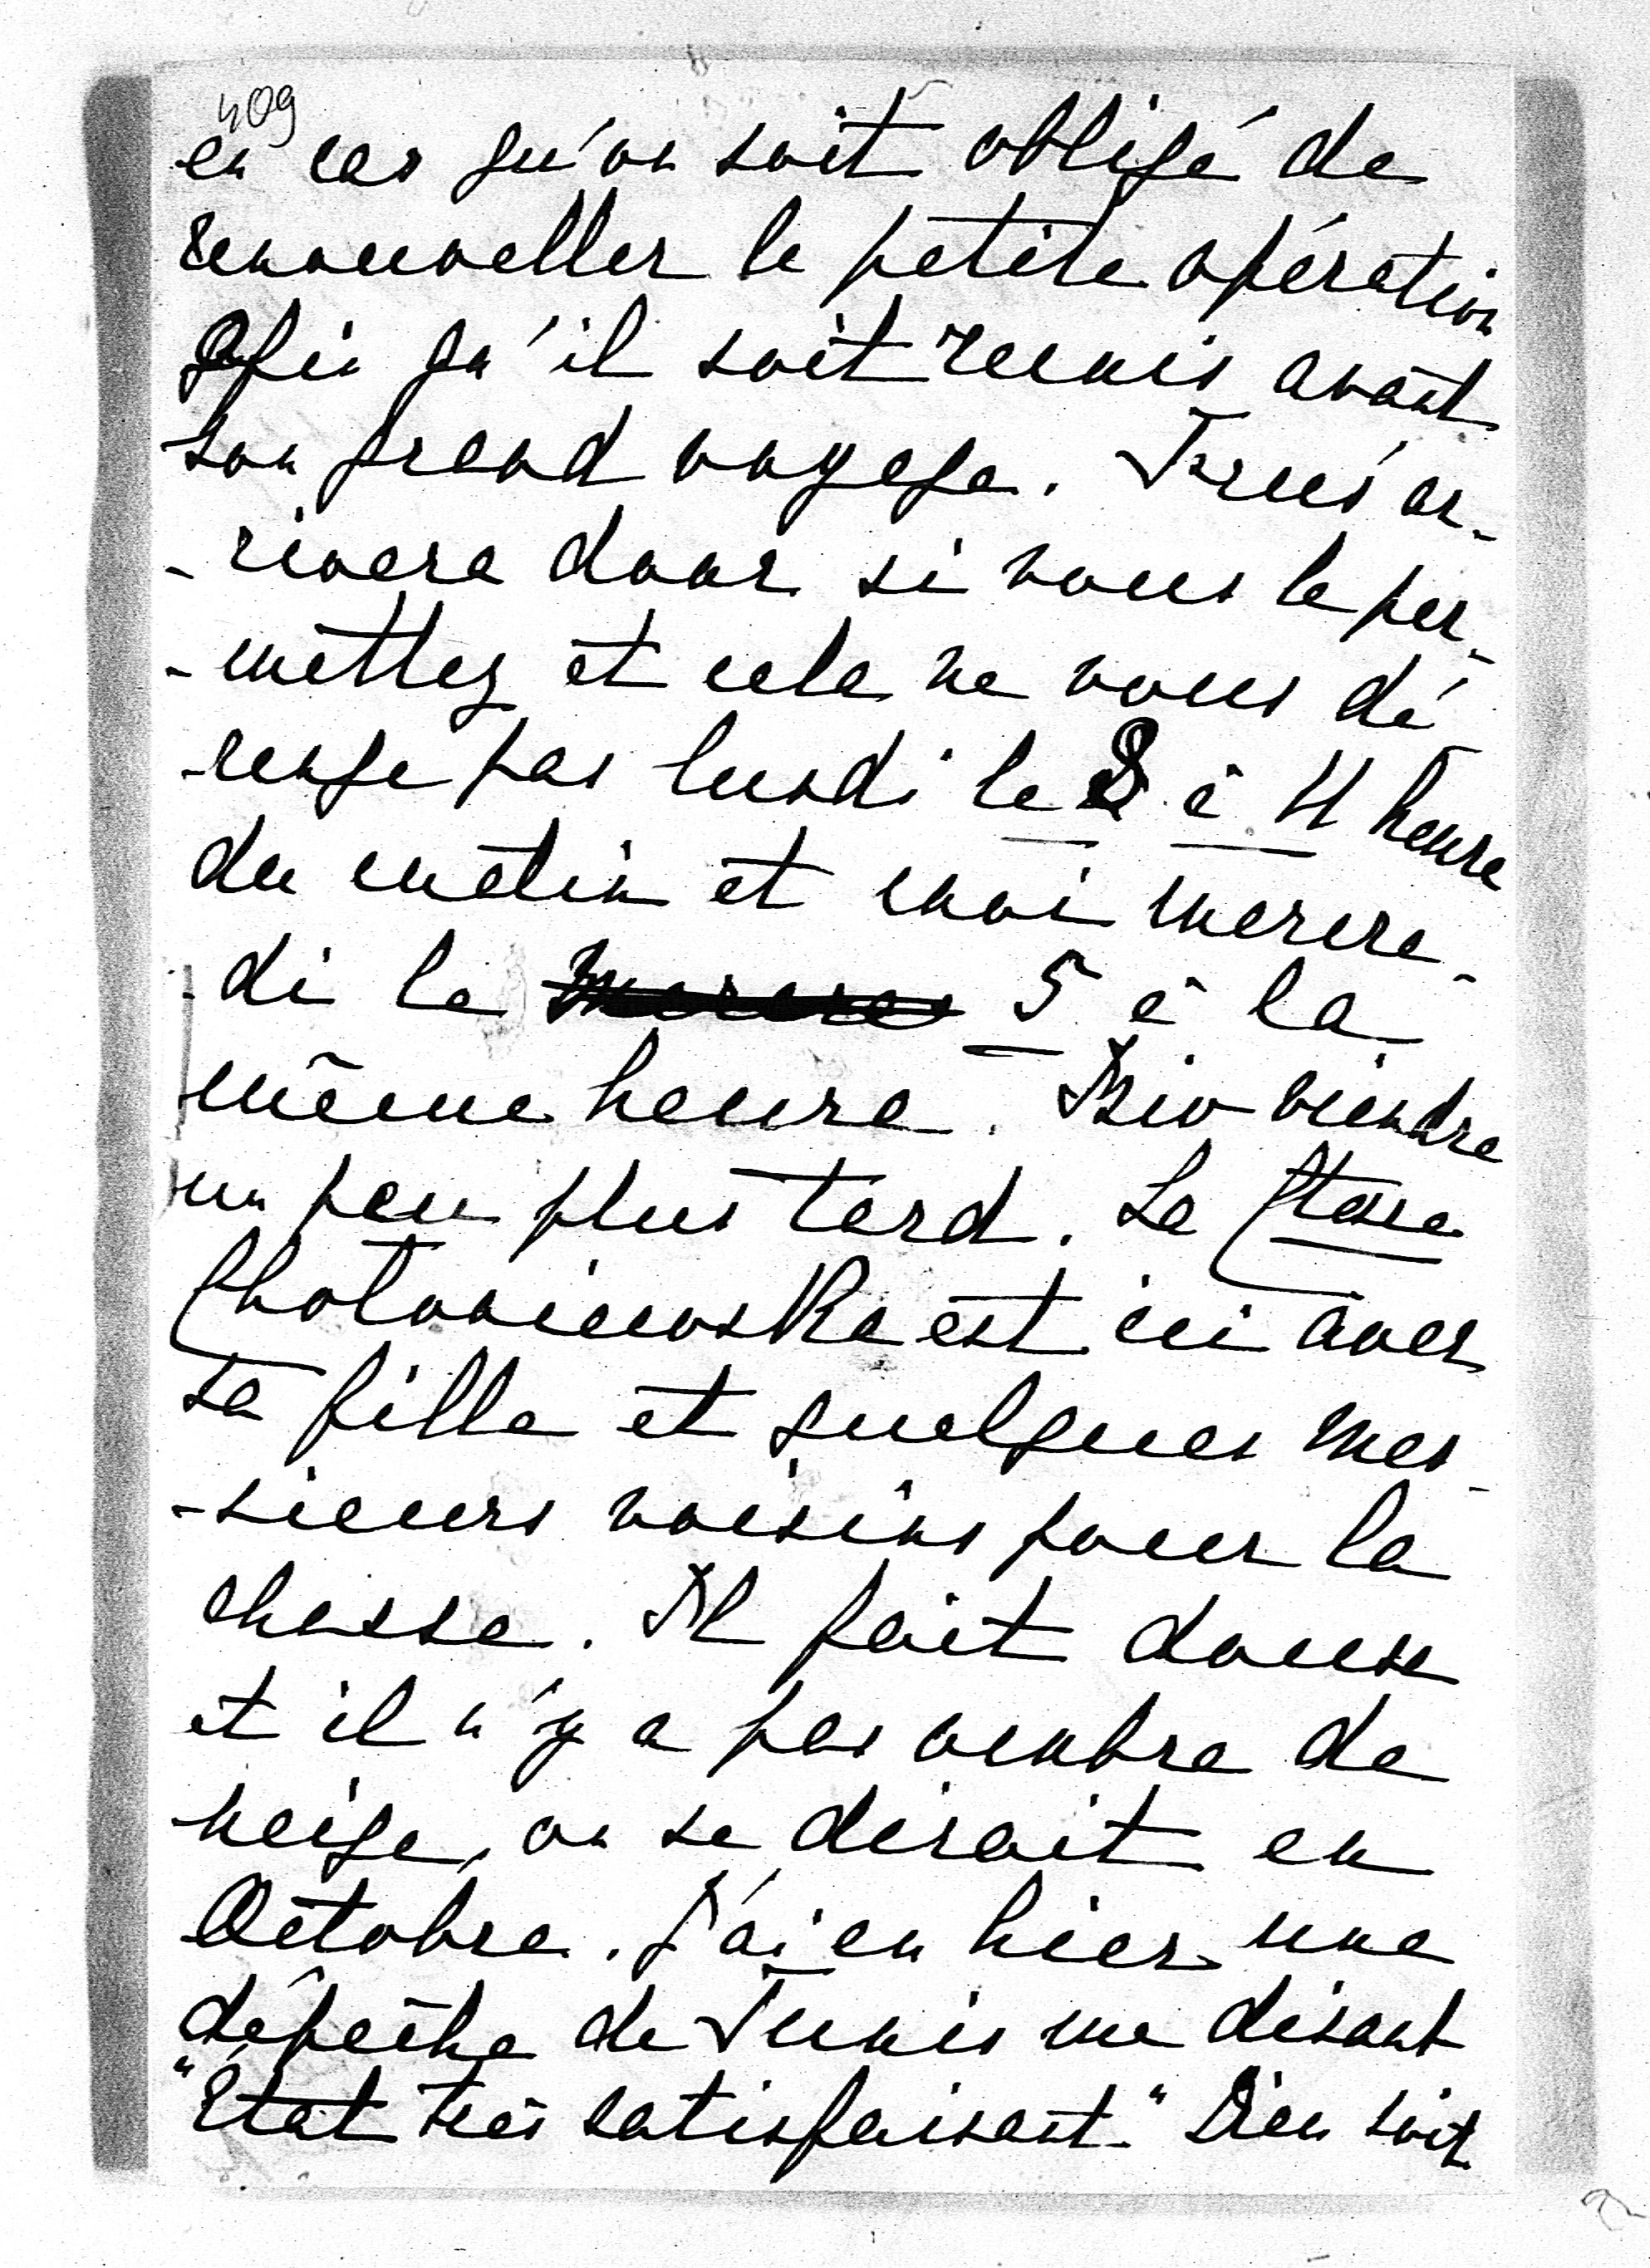 409
en cas qu'on soit obligé de
renouveller la petite opération
afin qu'il soit remis avant
son grand voyage. ar-
-rivera donc si vous le per-
-mettez et cela ne vous dé
-range pas lundi le 3 à 11 heure
du matin et moi mercre-
-di le 5 à la
même heure. viendra
un peu plus tard. La
est ici avec
sa fille et quelques mes-
-sieurs voisins pour la
chasse. Il fait doux
et il n'y a pas ombre de
neige, on se dirait en
Octobre. J'ai eu hier une
dépêche de Tunis me disant
"Etat très satisfaisant." Dieu soit